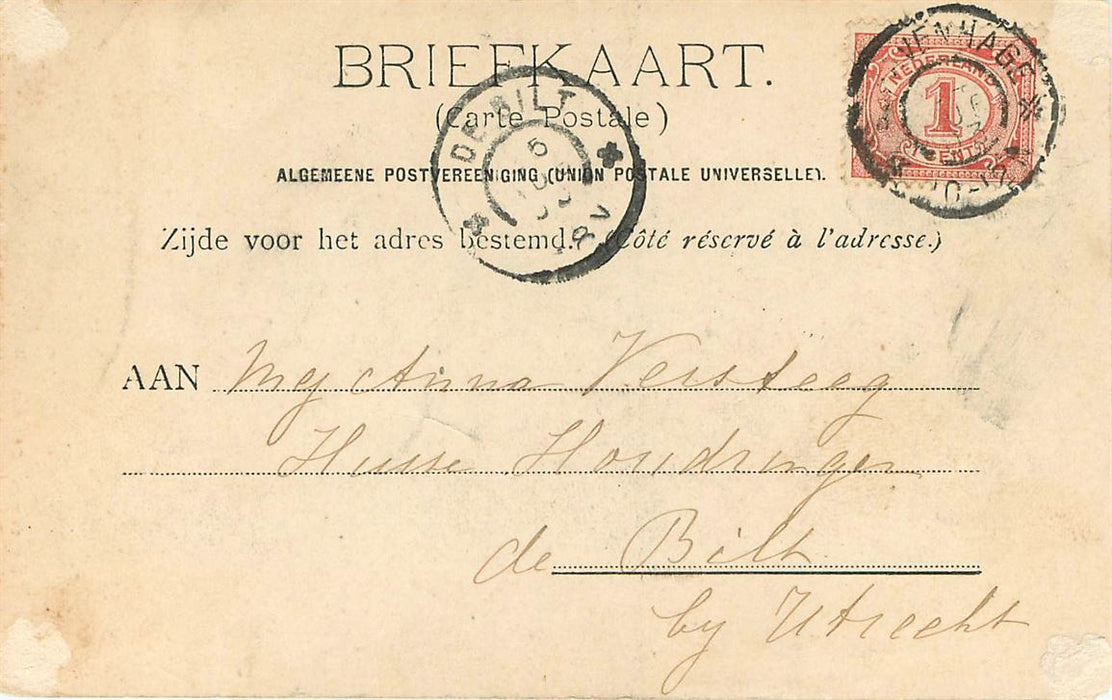 BRIEFKAART.
(Carte Postale)
ALGEMEENE POSTVEREENIGING (UNION POSTALE UNIVERSELLE).
Zijde voor het adres bestemd. (Côté réservé à l'adresse.)
DE BILT
5
VENHAGE
NEDERLAND
1
CENT
AAN Mej Anna Versteeg
Huize Houdringen
de Bilt
by Utrecht